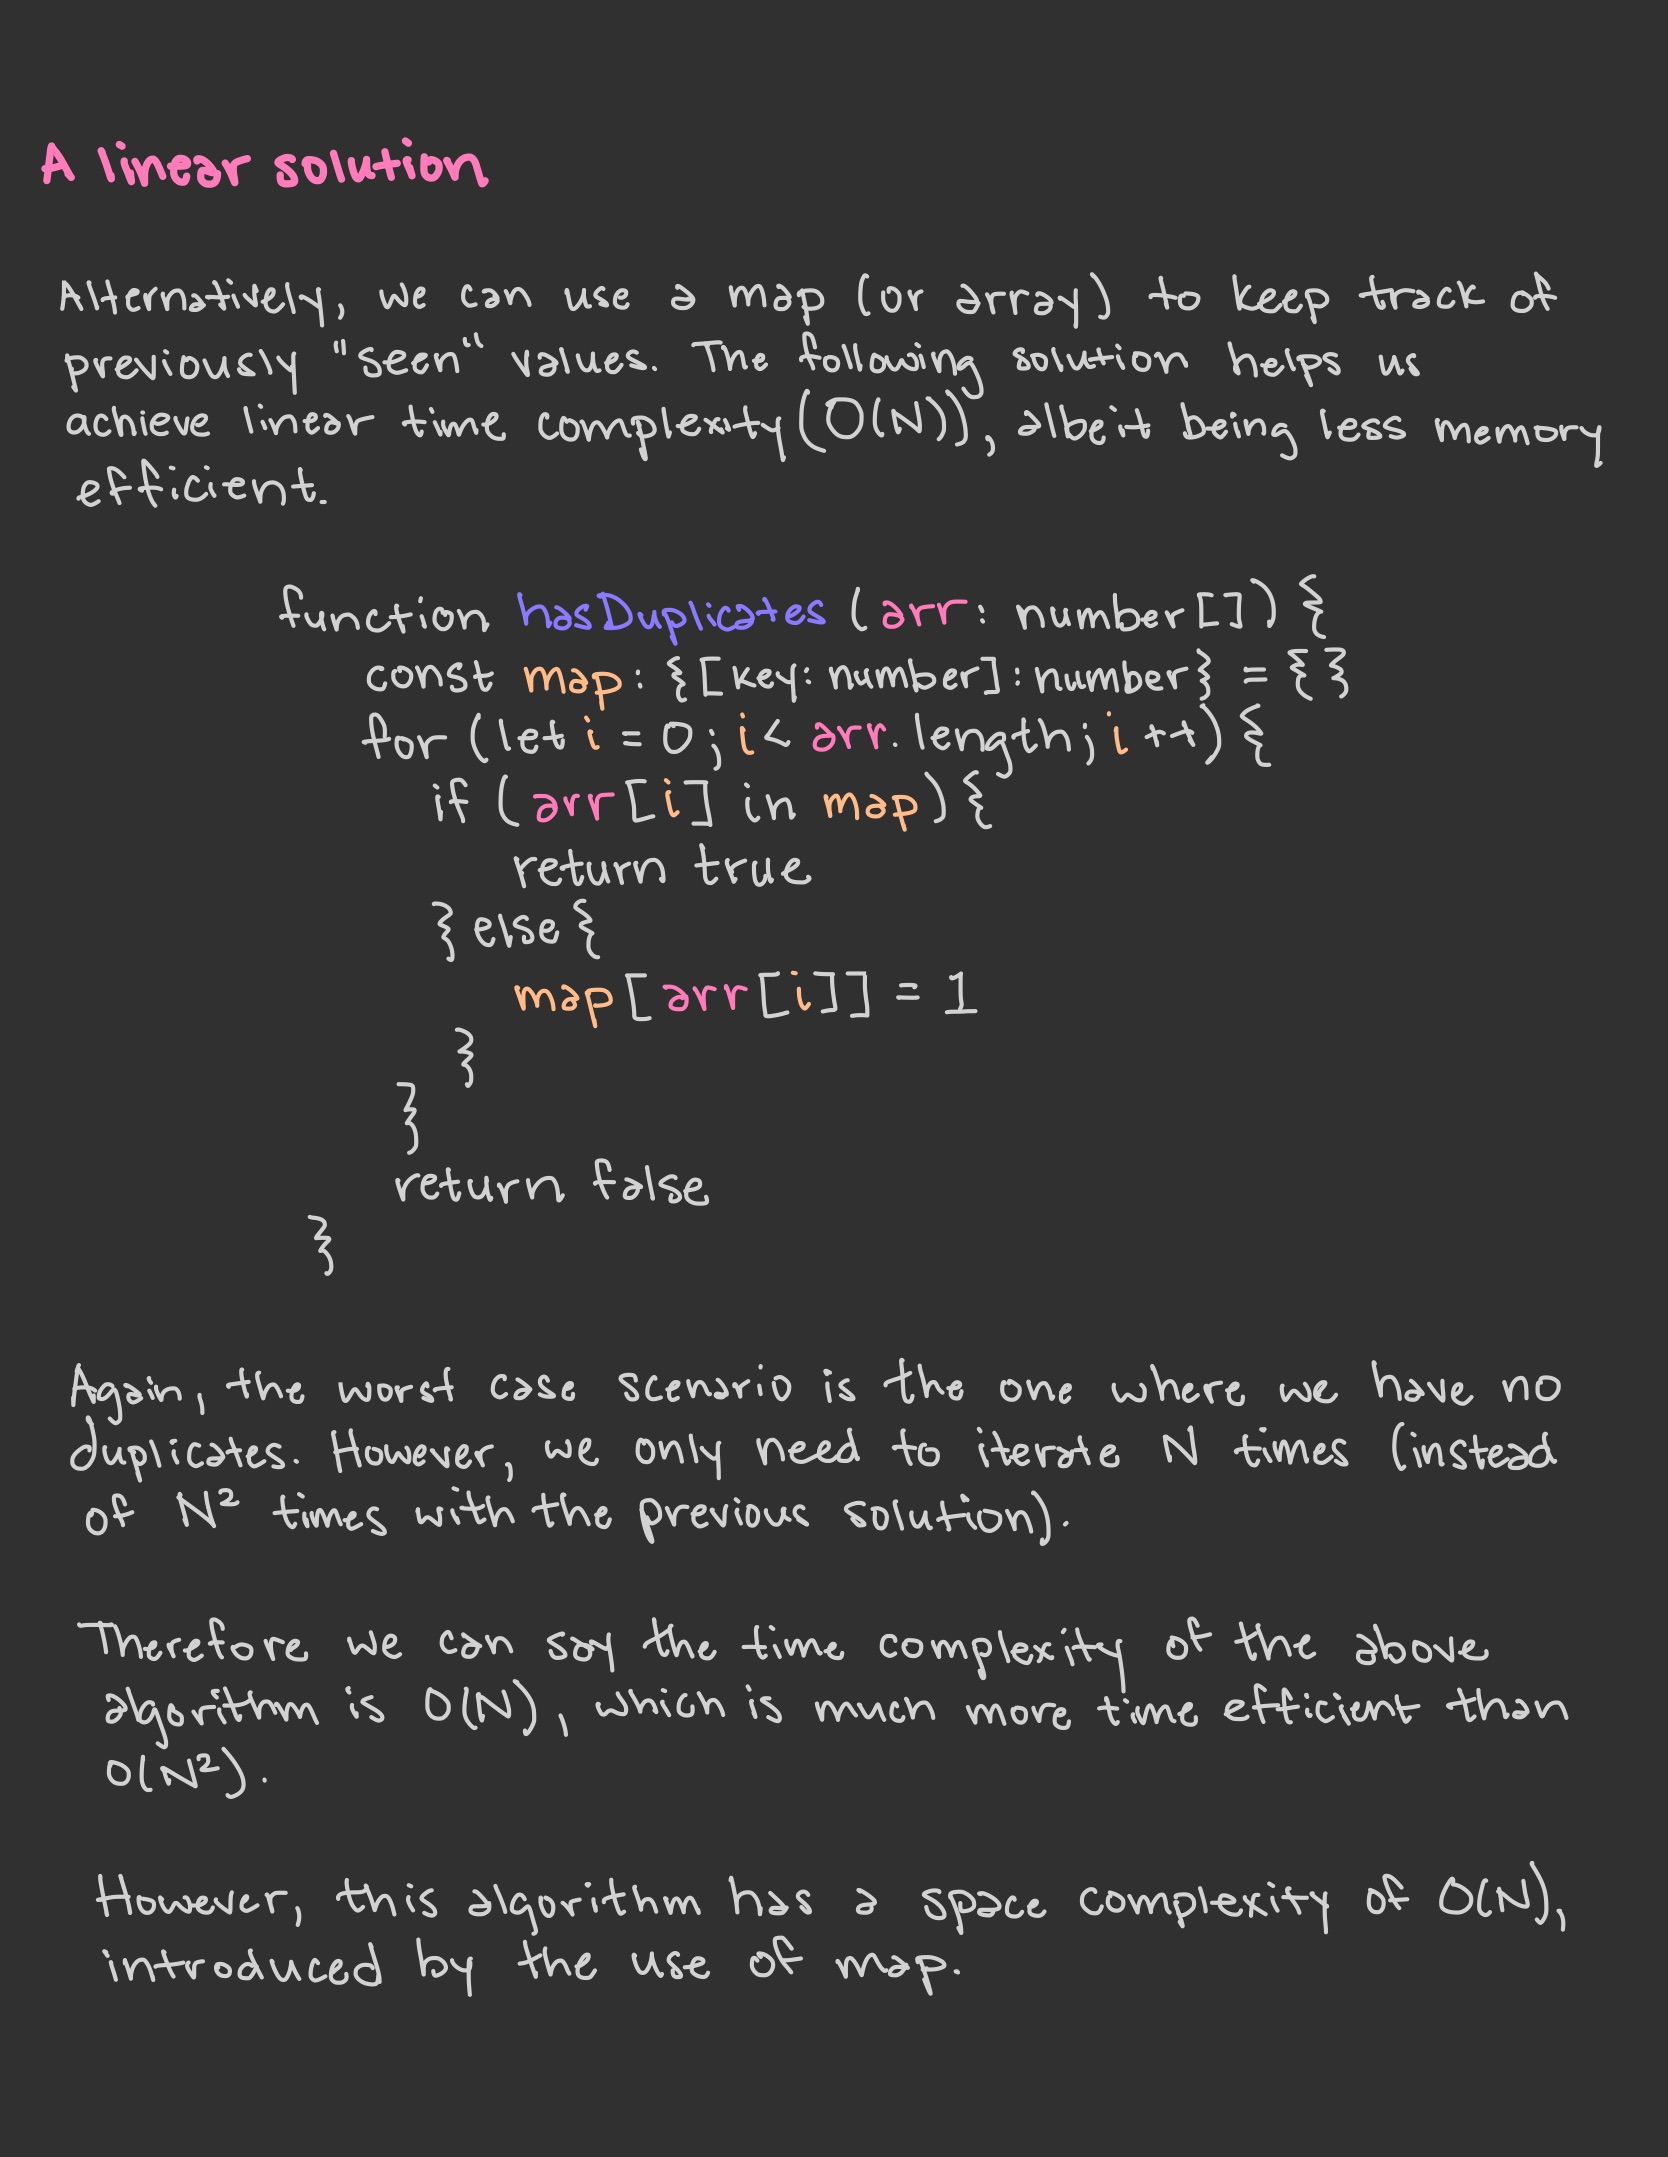 A linear solution
Alternatively, we can use a map (or array) to keep track of
previously "seen" values. The following solution helps us
achieve linear time complexity (O(N)), albeit being less memory
efficient.
function hasDuplicates (arr: number[]) {
const map: {[key: number]: number} = {}
for (let i = 0; i < arr.length; i ++) {
if (arr[i] in map) {
return true
} else {
map[arr[i]] = 1
}
}
return false
}
Again, the worst case scenario is the one where we have no
duplicates. However, we only need to iterate N times (instead
of N² times with the previous solution).
Therefore we can say the time complexity of the above
algorithm is O(N), which is much more time efficient than
O(N²).
However, this algorithm has a space complexity of O(N),
introduced by the use of map.